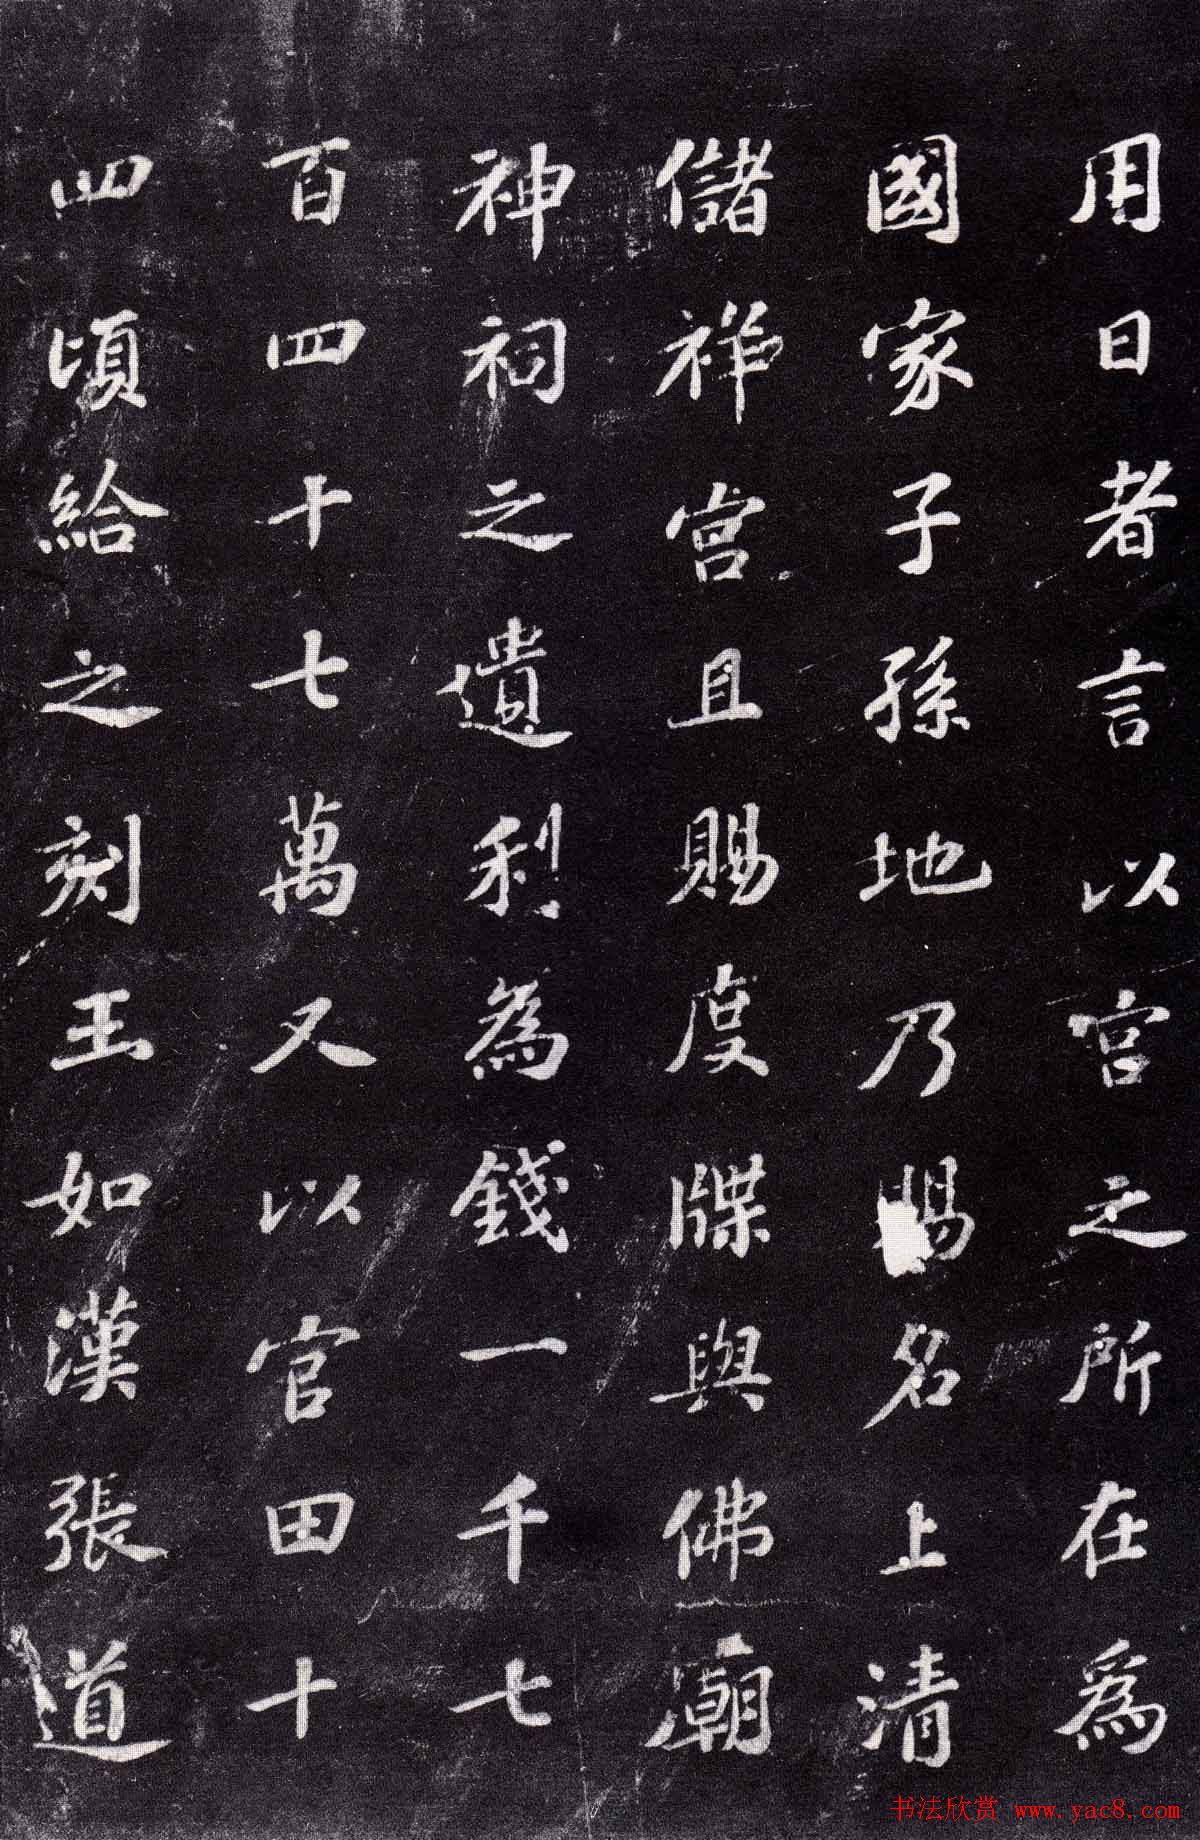 用日者言以宮之所在爲
國家子孫地乃賜名上清
儲祥宮且賜度牒與佛廟
神祠之遺利為錢一千七
百四十七萬又以官田十
四頃給之刻玉如漢張道
书法欣赏 www.yac8.com